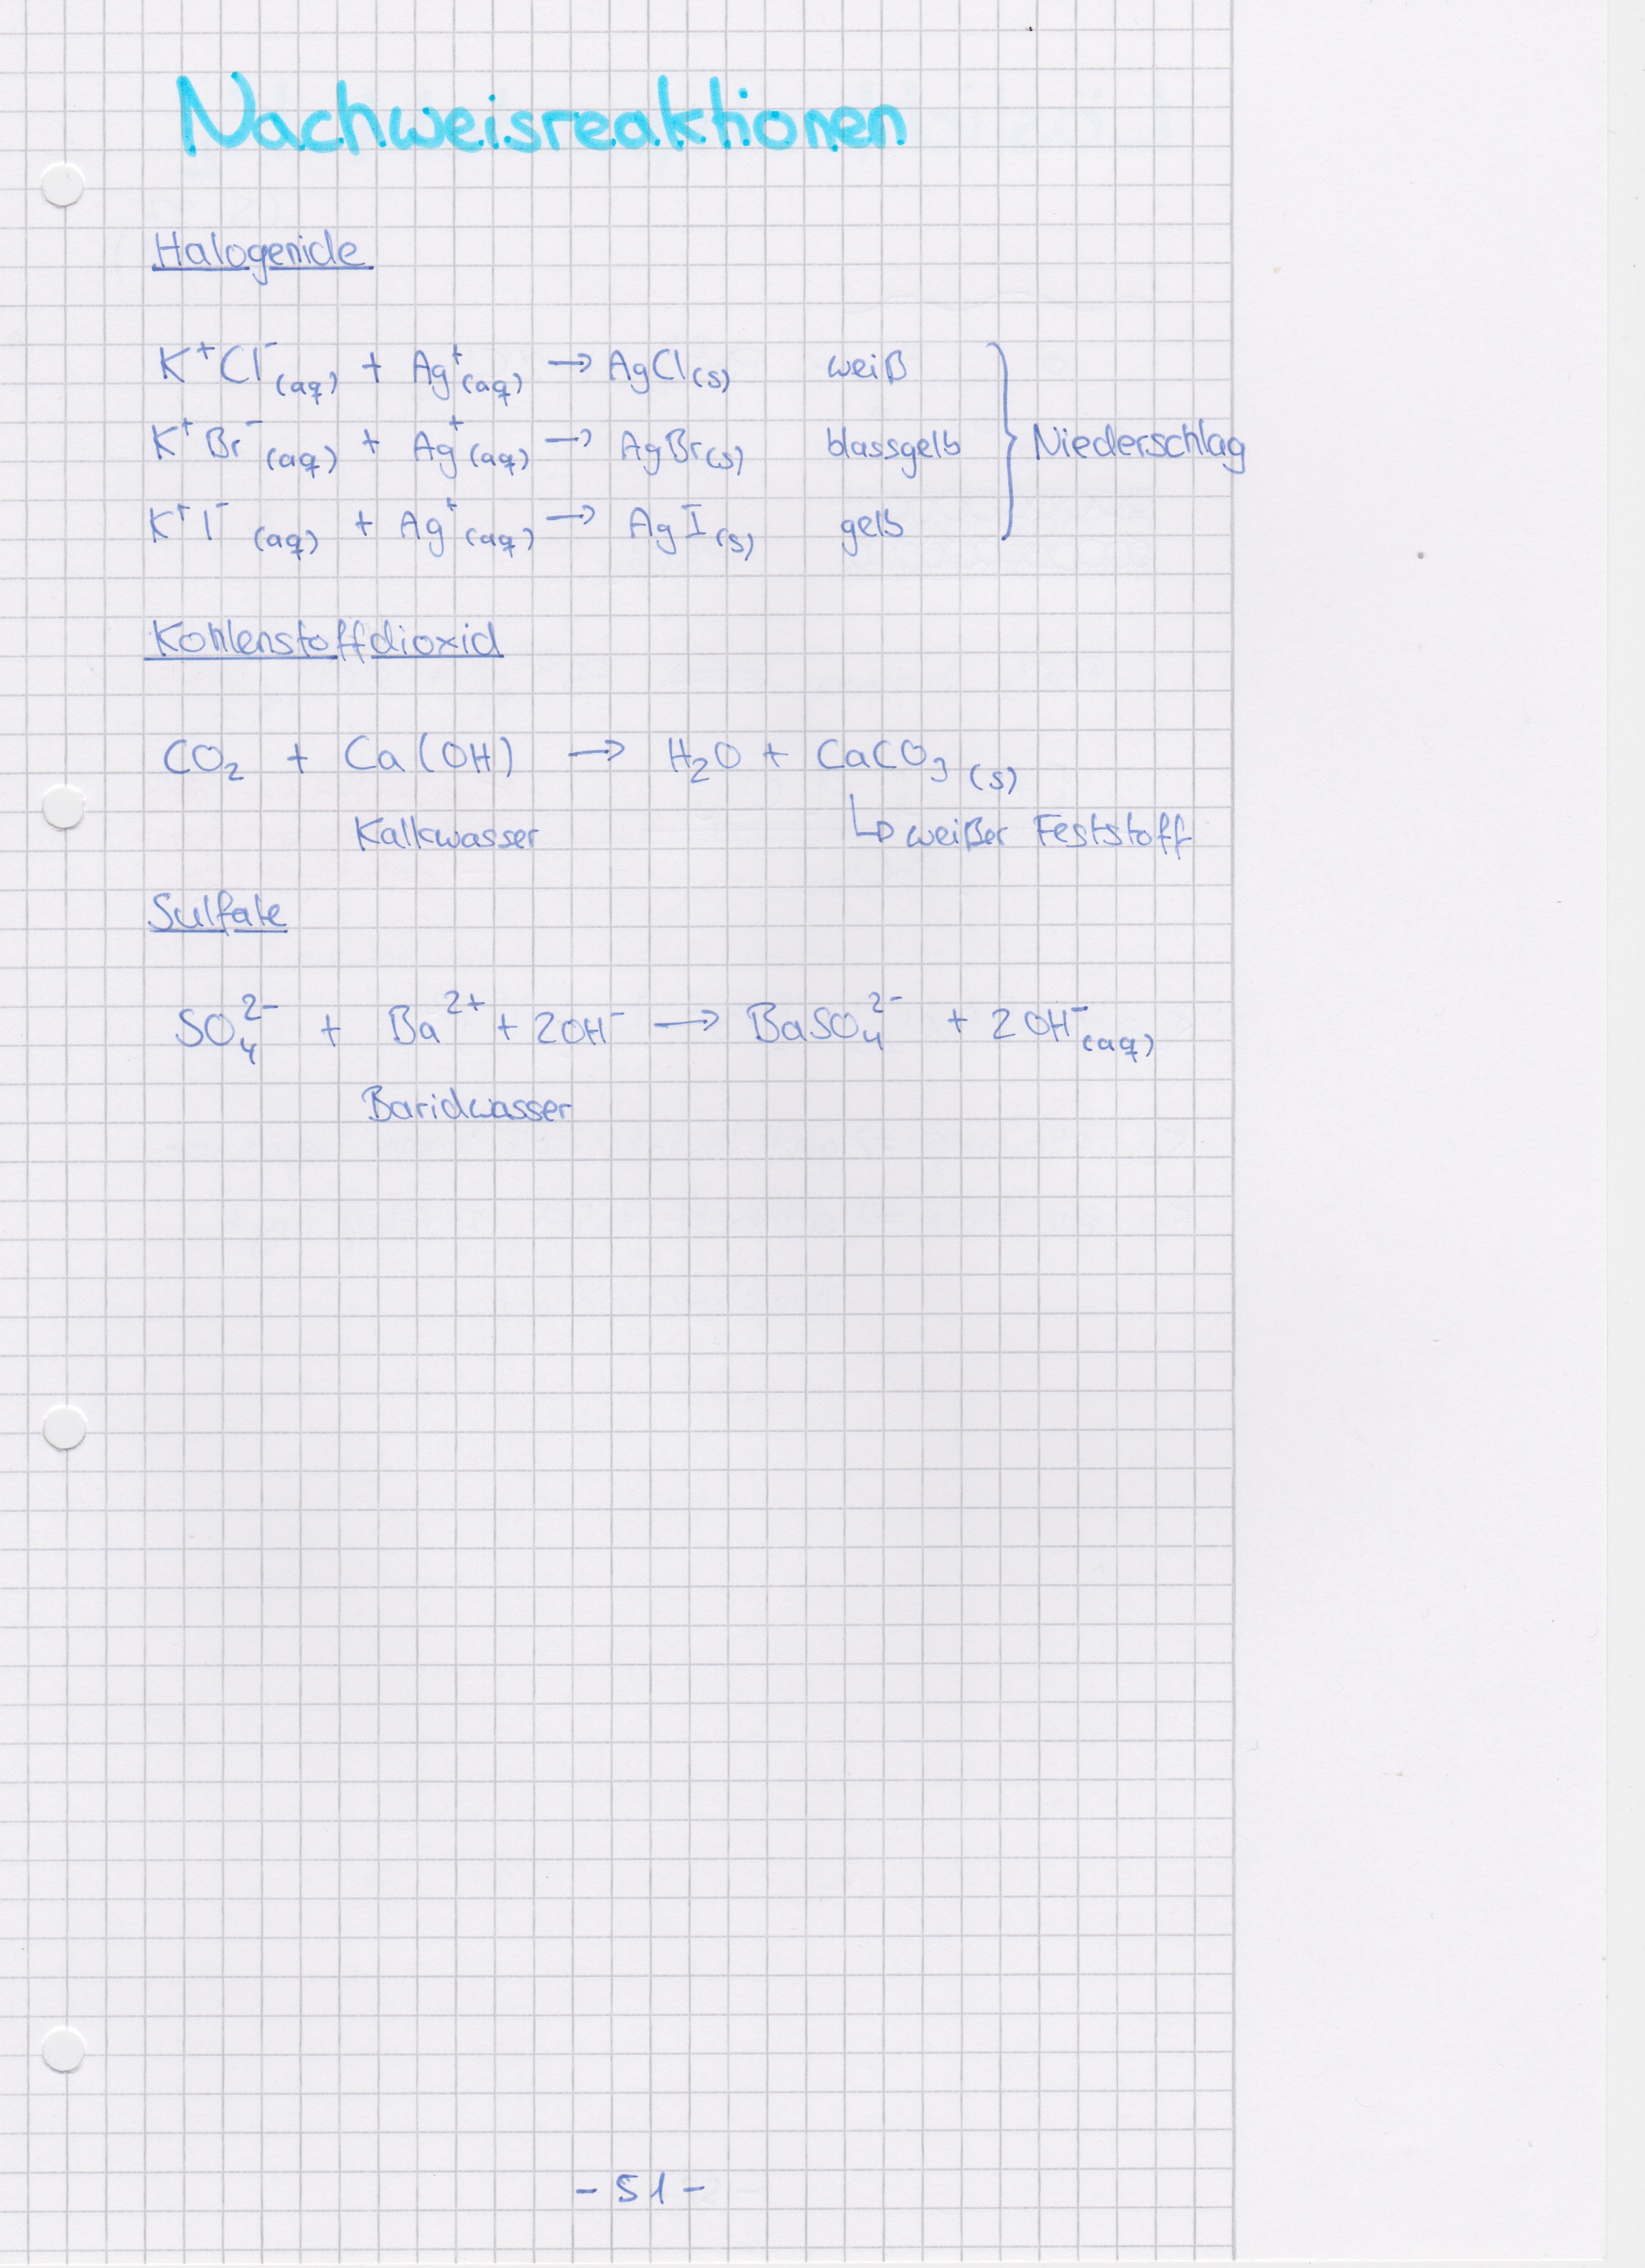 Nachweisreaktionen
Halogenide
K⁺Cl⁻(aq) + Ag⁺(aq) → AgCl(s) weiß
K⁺Br⁻(aq) + Ag⁺(aq) → AgBr(s) blassgelb } Niederschlag
K⁺I⁻(aq) + Ag⁺(aq) → AgI(s) gelb
Kohlenstoffdioxid
CO₂ + Ca(OH) → H₂O + CaCO₃(s)
Kalkwasser ↳ weißer Feststoff
Sulfate
SO₄²⁻ + Ba²⁺ + 2OH⁻ → BaSO₄²⁻ + 2OH⁻(aq)
Baridwasser
- 51 -